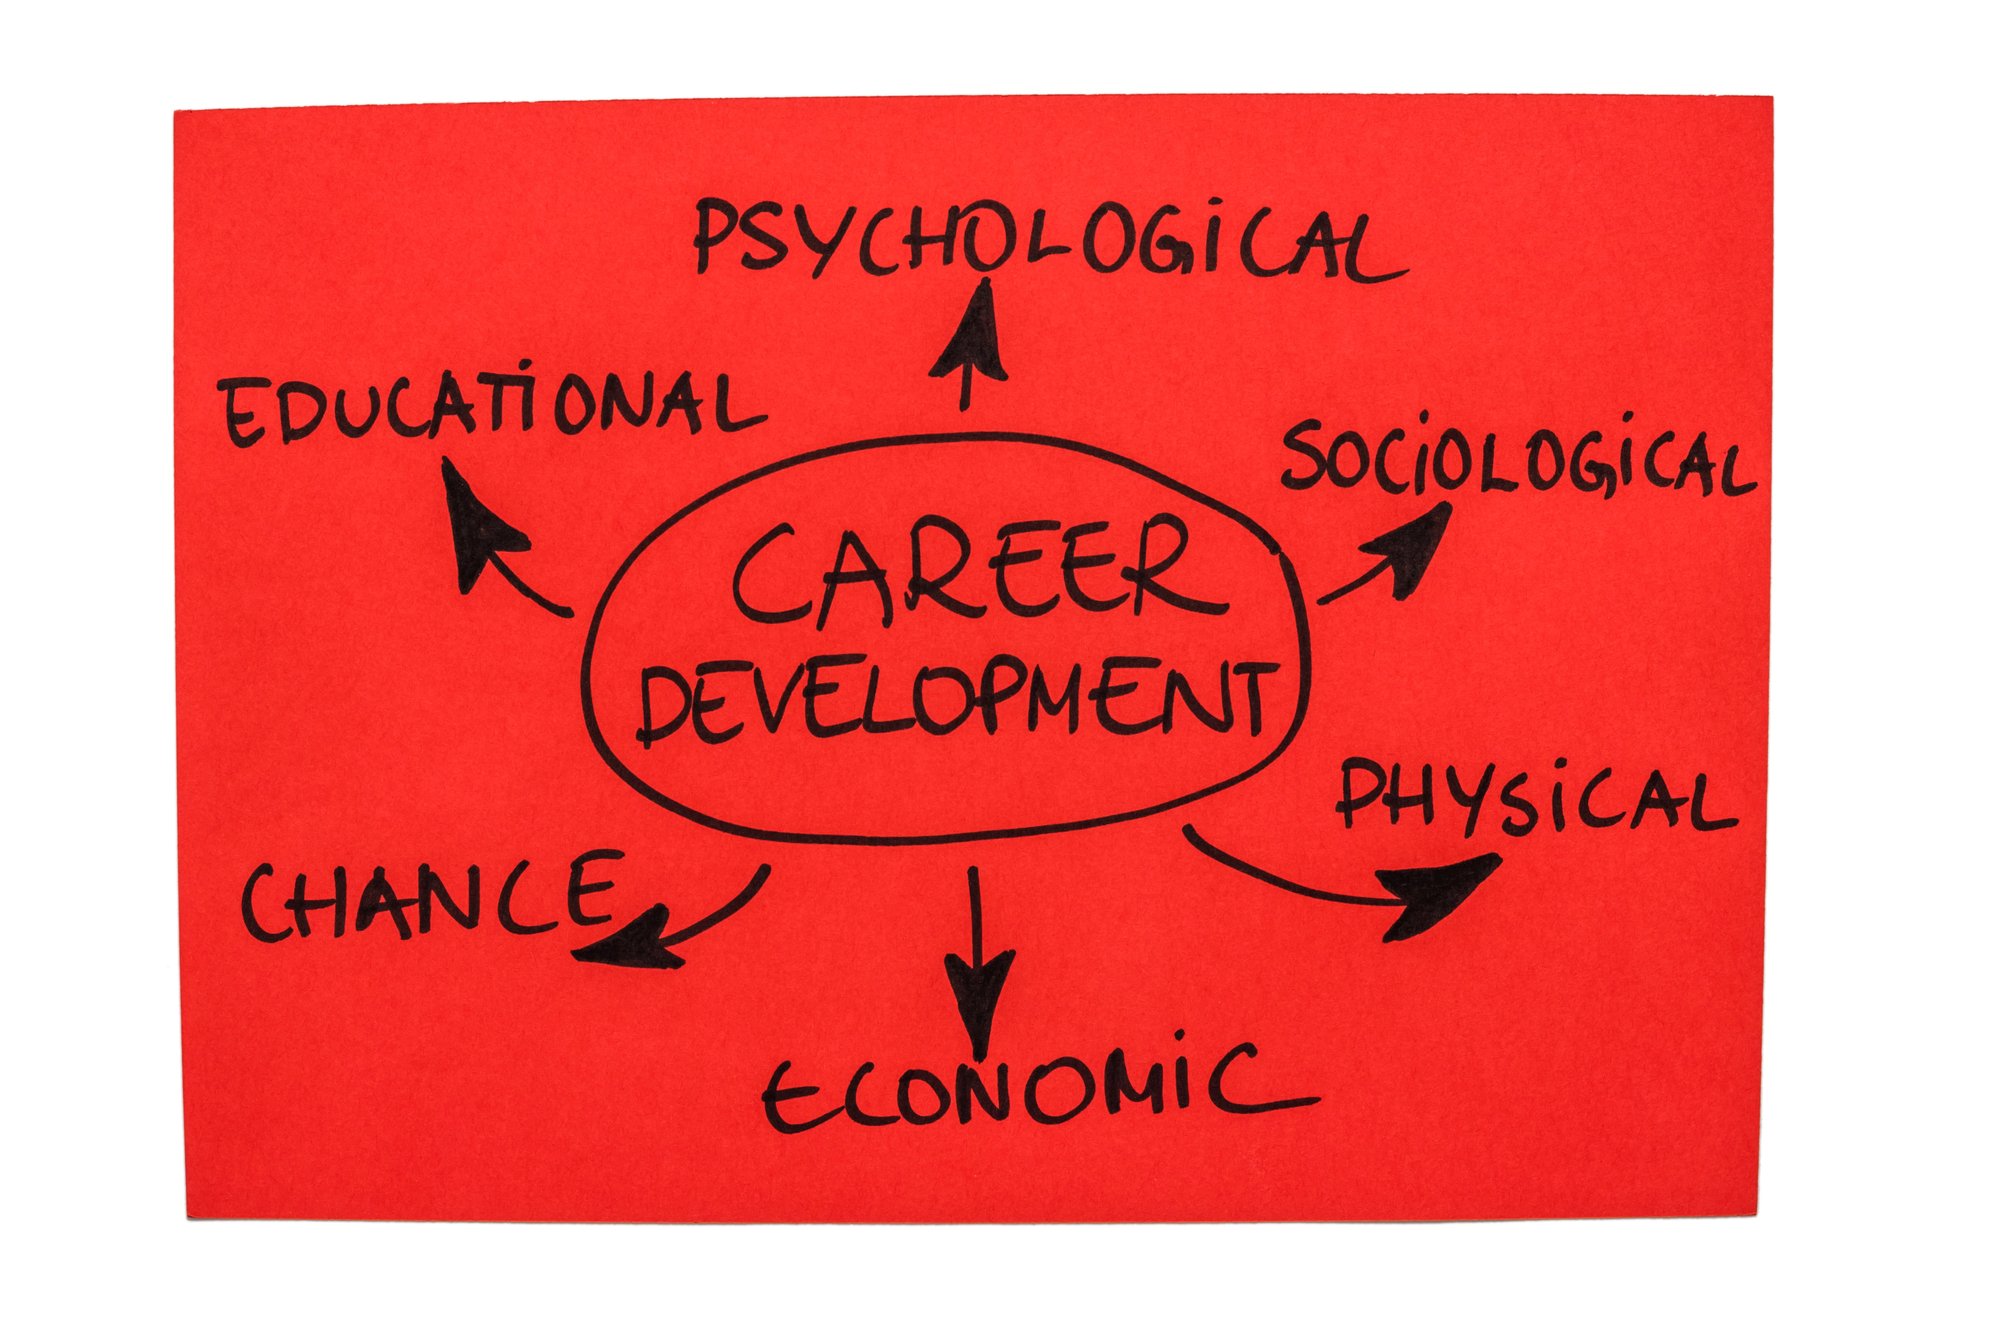 PSYCHOLOGICAL
EDUCATIONAL
SOCIOLOGICAL
CAREER
DEVELOPMENT
PHYSICAL
CHANCE
ECONOMIC